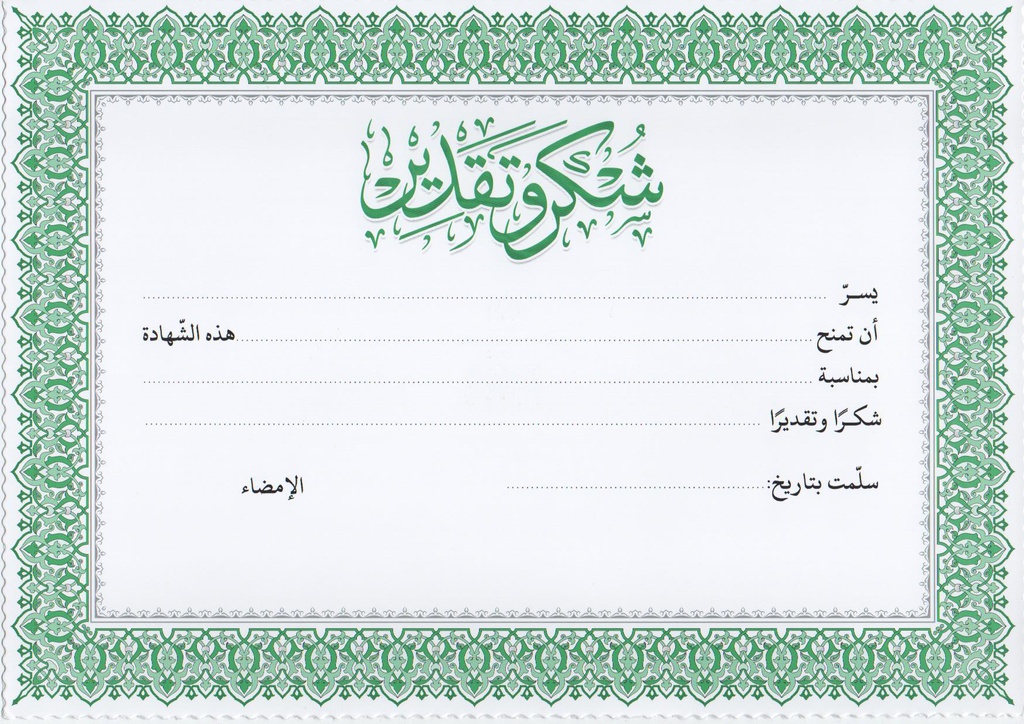 شكر وتقدير
يســرّ ........................................
أن تمنح ........................................ هذه الشّهادة
بمناسبة ........................................
شكــرًا وتقديرًا ........................................
سلّمت بتاريخ: ........................................ الإمضاء